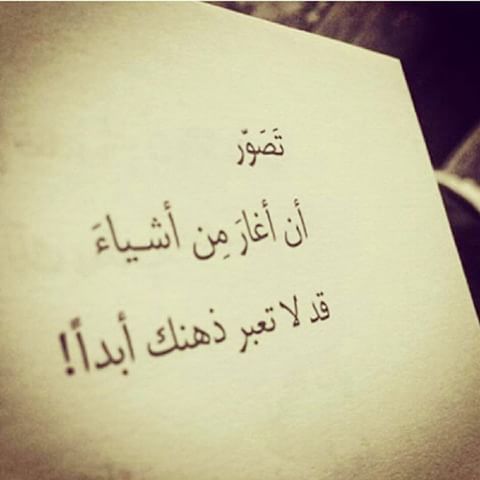 تَصَوّر
أن أغارَ مِن أشياءَ
قد لا تعبر ذهنك أبداً!